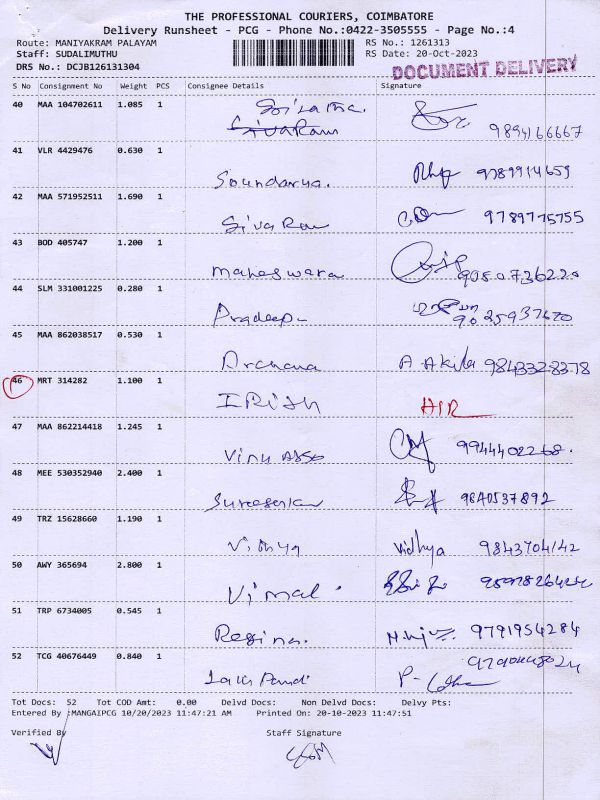 THE PROFESSIONAL COURIERS, COIMBATORE
Delivery Runsheet - PCG - Phone No.:0422-3505555 - Page No.:4
Route: MANIYAKRAM PALAYAM RS No.: 1261313
Staff: SUDALIMUTHU RS Date: 20-Oct-2023
DRS No.: DCJB126131304 DOCUMENT DELIVERY
S No Consignment No Weight PCS Consignee Details Signature
40 MAA 104702611 1.085 1
SivaRam 9894166667
41 VLR 4429476 0.630 1
Soundarya. 9789914659
42 MAA 571952511 1.690 1
SivaRam 9789775755
43 BOD 405747 1.200 1
Maheswara 9050736220
44 SLM 331001225 0.280 1
Pradeep 9025937670
45 MAA 862038517 0.530 1
Archana A. Akila 9843328378
46 MRT 314282 1.100 1
IRISH AIR
47 MAA 862214418 1.245 1
9944402268.
48 MEE 530352940 2.400 1
9840537892
49 TRZ 15628660 1.190 1
Vidhya Vidhya 9843704142
50 AWY 365694 2.800 1
Vimal.
51 TRP 6734005 0.545 1
Regina. 9791954284
52 TCG 40676449 0.840 1
Tot Docs: 52 Tot COD Amt: 0.00 Delvd Docs: Non Delvd Docs: Delvy Pts:
Entered By :MANGAIPCG 10/20/2023 11:47:21 AM Printed On: 20-10-2023 11:47:51
Verified By Staff Signature